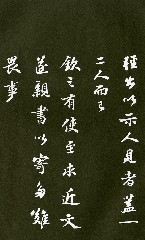 輕出以示人見者盖一
二人而已
欽之有使至求近文
遂親書以寄多難
畏事